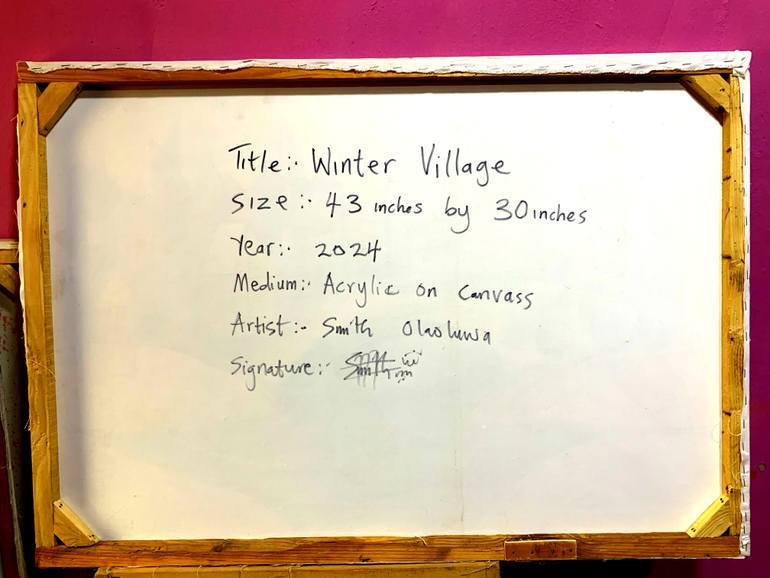 Title:- Winter Village
Size:- 43 inches by 30inches
Year:- 2024
Medium:- Acrylic on canvass
Artist:- Smith Olaoluwa
Signature:- Smith